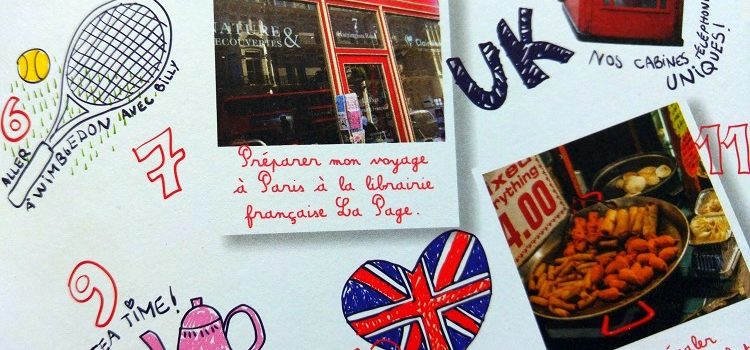 NATURE &
DÉCOUVERTES
7
Harrington Road
UK
NOS CABINES
TÉLÉPHONIQUES
UNIQUES!
6
ALLER
À WIMBLEDON AVEC BILLY
7
Préparer mon voyage
à Paris à la librairie
française La Page.
11
4.00
9
TEA TIME!